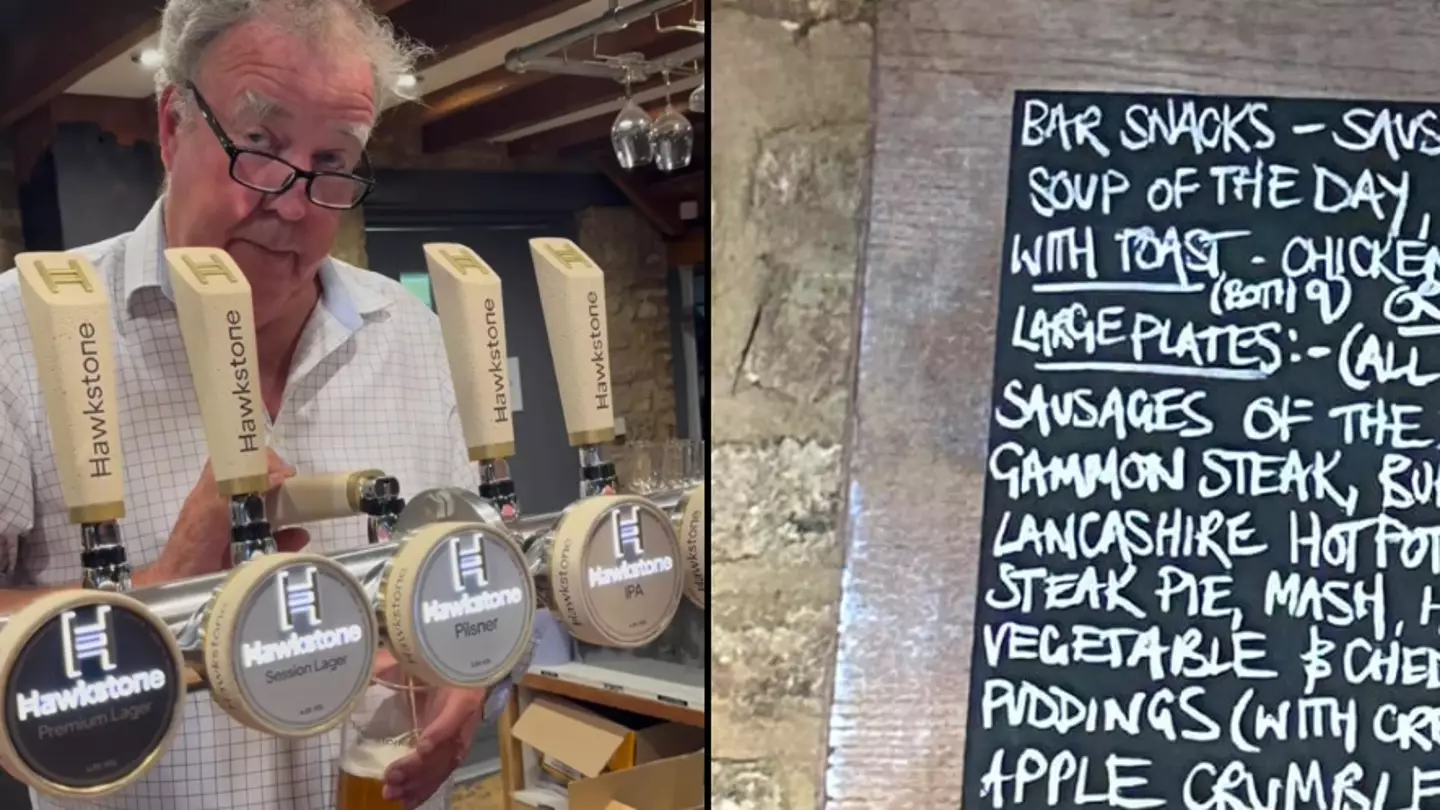 Hawkstone
Hawkstone
Hawkstone
Hawkstone
Hawkstone
Premium Lager
Hawkstone
Session Lager
Hawkstone
Hawkstone
Pilsner
Hawkstone
Hawkstone
IPA
Hawkstone
BAR SNACKS - SAUS
SOUP OF THE DAY,
WITH TOAST - CHICKEN
(BOTH
LARGE PLATES:- (ALL
SAUSAGES OF THE
GAMMON STEAK, BU
LANCASHIRE HOT POT
STEAK PIE, MASH, H
VEGETABLE & CHED
PUDDINGS (WITH CRE
APPLE CRUMBLE